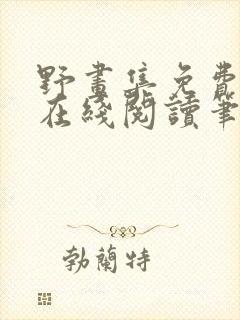 野畫集免費
在綫閱讀筆
勃蘭特